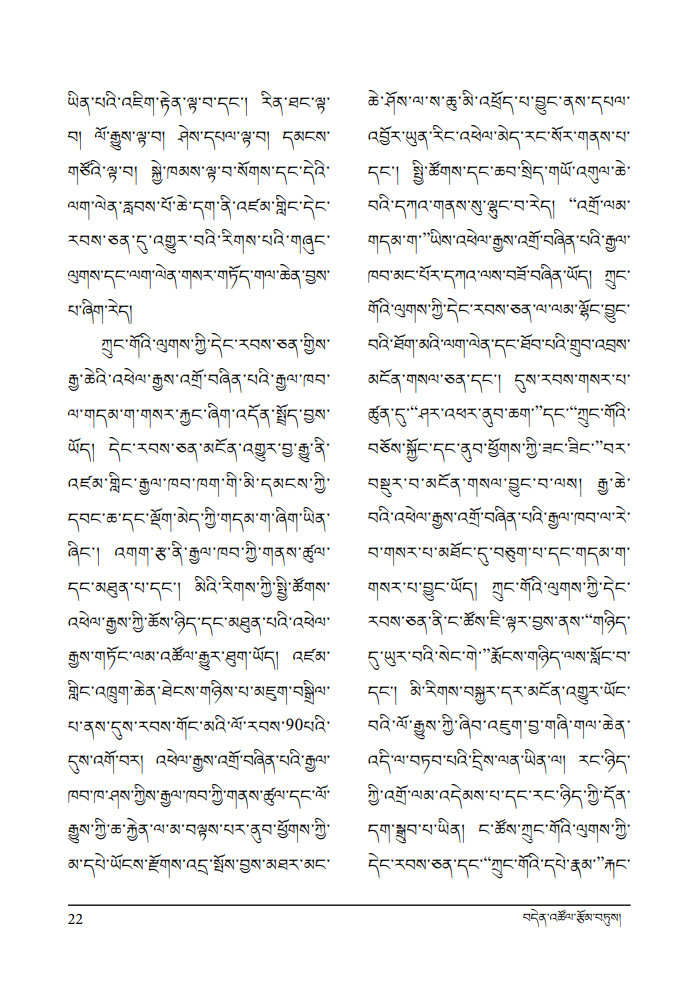 ཡིན་པའི་འཇིག་རྟེན་ལྟ་བ་དང་། རིན་ཐང་ལྟ་
བ། ལོ་རྒྱུས་ལྟ་བ། ཤེས་དཔལ་ལྟ་བ། དམངས་
གཙོའི་ལྟ་བ། སྐྱེ་ཁམས་ལྟ་བ་སོགས་དང་དེའི་
ལག་ལེན་རླབས་པོ་ཆེ་དག་ནི་འཛམ་གླིང་དེང་
རབས་ཅན་དུ་འགྱུར་བའི་རིགས་པའི་གཞུང་
ལུགས་དང་ལག་ལེན་གསར་གཏོད་གལ་ཆེན་བྱས་
པ་ཞིག་རེད།
ཀྲུང་གོའི་ལུགས་ཀྱི་དེང་རབས་ཅན་གྱིས་
རྒྱ་ཆེའི་འཕེལ་རྒྱས་འགྲོ་བཞིན་པའི་རྒྱལ་ཁབ་
ལ་གདམ་ག་གསར་རྐྱང་ཞིག་འདོན་སྤྲོད་བྱས་
ཡོད། དེང་རབས་ཅན་མངོན་འགྱུར་བྱ་རྒྱུ་ནི་
འཛམ་གླིང་རྒྱལ་ཁབ་ཁག་གི་མི་དམངས་ཀྱི་
དབང་ཆ་དང་ལྡོག་མེད་ཀྱི་གདམ་ག་ཞིག་ཡིན་
ཞིང་། འགག་རྩ་ནི་རྒྱལ་ཁབ་ཀྱི་གནས་ཚུལ་
དང་མཐུན་པ་དང་། མིའི་རིགས་ཀྱི་སྤྱི་ཚོགས་
འཕེལ་རྒྱས་ཀྱི་ཆོས་ཉིད་དང་མཐུན་པའི་འཕེལ་
རྒྱས་གཏོང་ལམ་འཚོལ་རྒྱུར་ཐུག་ཡོད། འཛམ་
གླིང་འཁྲུག་ཆེན་ཐེངས་གཉིས་པ་མཇུག་བསྒྲིལ་
པ་ནས་དུས་རབས་གོང་མའི་ལོ་རབས་90པའི་
དུས་འགོ་བར། འཕེལ་རྒྱས་འགྲོ་བཞིན་པའི་རྒྱལ་
ཁབ་ཁ་ཤས་ཀྱིས་རྒྱལ་ཁབ་ཀྱི་གནས་ཚུལ་དང་ལོ་
རྒྱུས་ཀྱི་ཆ་རྐྱེན་ལ་མ་བལྟས་པར་ནུབ་ཕྱོགས་ཀྱི་
མ་དཔེ་ཡོངས་རྫོགས་འདྲ་སྤོས་བྱས་མཐར་མང་
ཆེ་ཤོས་ལ་ས་ཆུ་མི་འཕྲོད་པ་བྱུང་ནས་དཔལ་
འབྱོར་ཡུན་རིང་འཕེལ་མེད་རང་སོར་གནས་པ་
དང་། སྤྱི་ཚོགས་དང་ཆབ་སྲིད་གཡོ་འགུལ་ཆེ་
བའི་དཀའ་གནས་སུ་ལྷུང་བ་རེད། “འགྲོ་ལམ་
གདམ་ག་”ཡིས་འཕེལ་རྒྱས་འགྲོ་བཞིན་པའི་རྒྱལ་
ཁབ་མང་པོར་དཀའ་ལས་བཟོ་བཞིན་ཡོད། ཀྲུང་
གོའི་ལུགས་ཀྱི་དེང་རབས་ཅན་ལ་ལམ་ལྷོང་བྱུང་
བའི་ཐོག་མའི་ལག་ལེན་དང་ཐོབ་པའི་གྲུབ་འབྲས་
མངོན་གསལ་ཅན་དང་། དུས་རབས་གསར་པ་
ཚུན་དུ་“ཤར་འཕར་ནུབ་ཆག་”དང་“ཀྲུང་གོའི་
བཅོས་སྐྱོང་དང་ནུབ་ཕྱོགས་ཀྱི་ཟང་ཟིང་”བར་
བསྡུར་བ་མངོན་གསལ་བྱུང་བ་ལས། རྒྱ་ཆེ་
བའི་འཕེལ་རྒྱས་འགྲོ་བཞིན་པའི་རྒྱལ་ཁབ་ལ་རེ་
བ་གསར་པ་མཐོང་དུ་བཅུག་པ་དང་གདམ་ག་
གསར་པ་བྱུང་ཡོད། ཀྲུང་གོའི་ལུགས་ཀྱི་དེང་
རབས་ཅན་ནི་ང་ཚོས་ཇི་ལྟར་བྱས་ནས་“གཉིད་
དུ་ཡུར་བའི་སེང་གེ་”རྨོངས་གཉིད་ལས་སློང་བ་
དང་། མི་རིགས་བསྐྱར་དར་མངོན་འགྱུར་ཡོང་
བའི་ལོ་རྒྱུས་ཀྱི་ཞིབ་འཇུག་བྱ་གཞི་གལ་ཆེན་
འདི་ལ་བཏབ་པའི་དྲིས་ལན་ཡིན་ལ། རང་ཉིད་
ཀྱི་འགྲོ་ལམ་འདེམས་པ་དང་རང་ཉིད་ཀྱི་དོན་
དག་སྒྲུབ་པ་ཡིན། ང་ཚོས་ཀྲུང་གོའི་ལུགས་ཀྱི་
དེང་རབས་ཅན་དང་“ཀྲུང་གོའི་དཔེ་རྣམ་”རྐང་
22
བདེན་འཚོལ་རྩོམ་བཏུས།